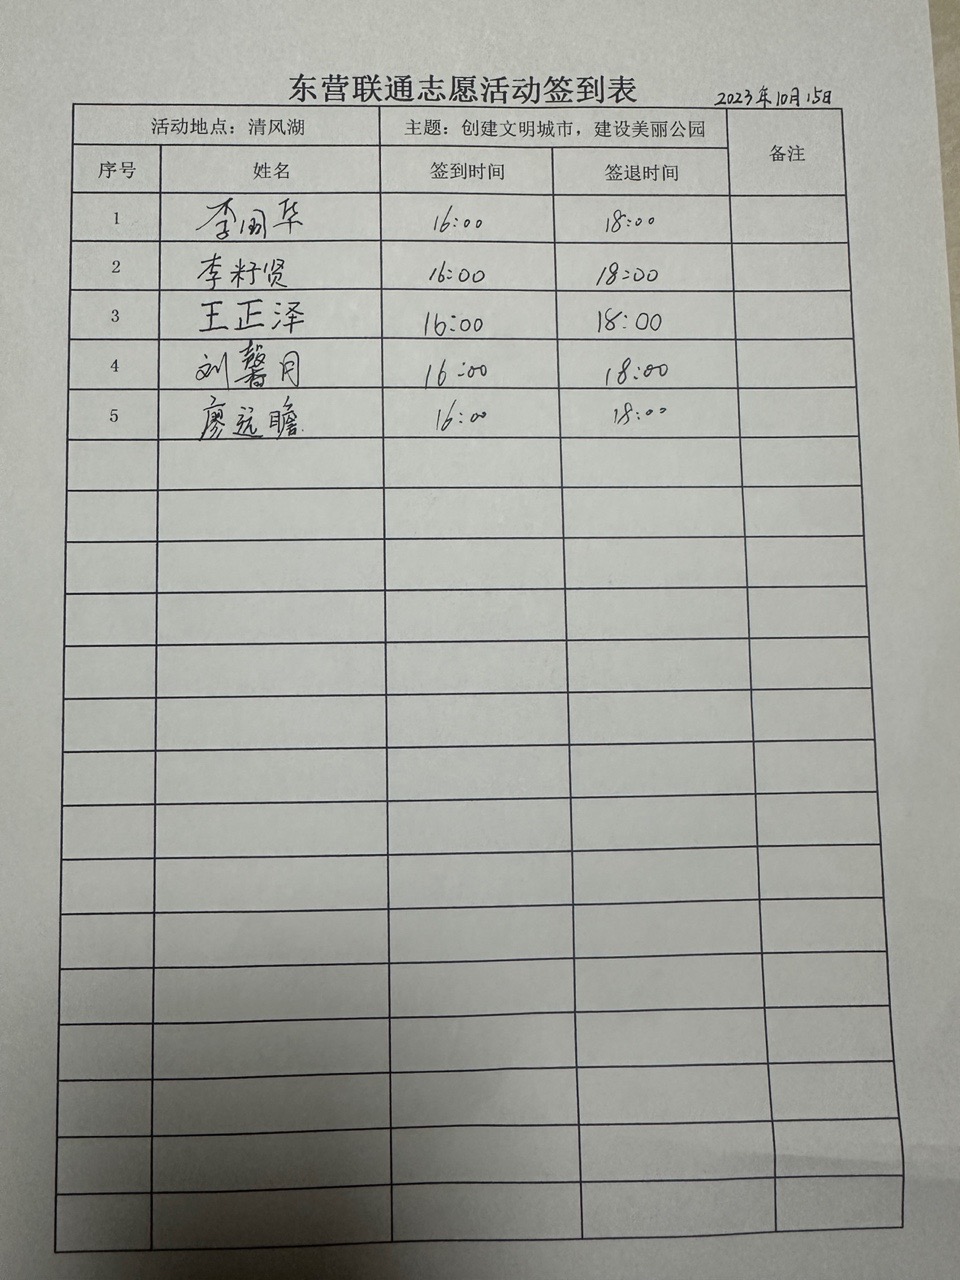 东营联通志愿活动签到表 2023年10月15日
活动地点：清风湖 主题：创建文明城市，建设美丽公园 备注
序号 姓名 签到时间 签退时间
1 李国华 16:00 18:00
2 李籽贤 16:00 18:00
3 王正泽 16:00 18:00
4 刘馨月 16:00 18:00
5 廖远瞻 16:00 18:00